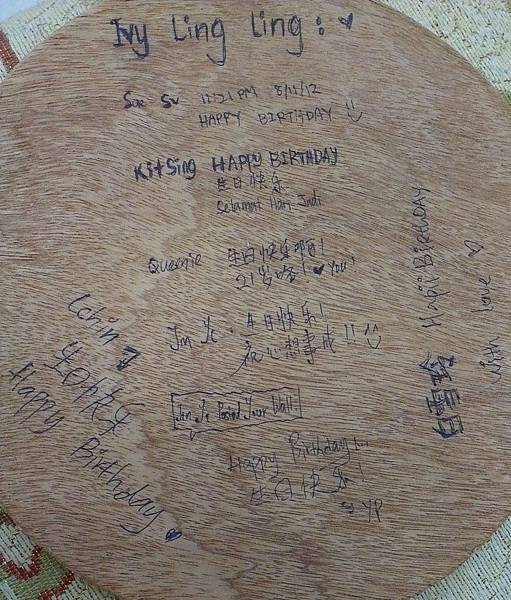 Ivy Ling Ling : ♥
Soe Su 11:21 PM 8/11/12
HAPPY BIRTHDAY
KitSing HAPPY BIRTHDAY
生日快乐
Selamat Hari Jadi
Queenie 生日快乐啊!
21岁咯! ♥ You!
Jin Ye : 生日快乐!
心想事成!!
Jin Ye Posted Your Wall!
Happy Birthday!...
生日快乐!
YP
生日快乐
Happy Birthday ♥
BirtHDAY
with love ♡